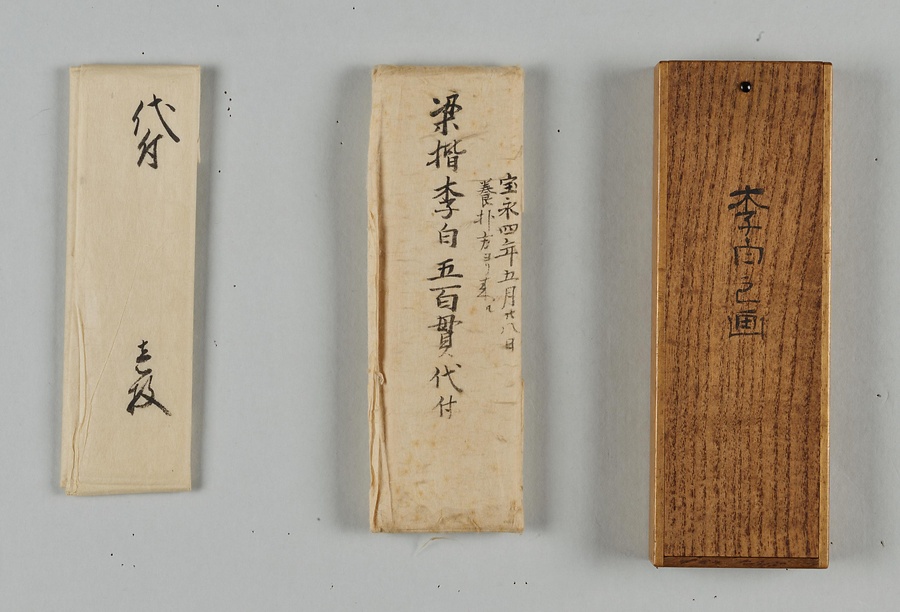 李白之画
宝永四年五月廿八日
養朴方ヨリ来ル
梁楷李白五百貫代付
代付
壱枚